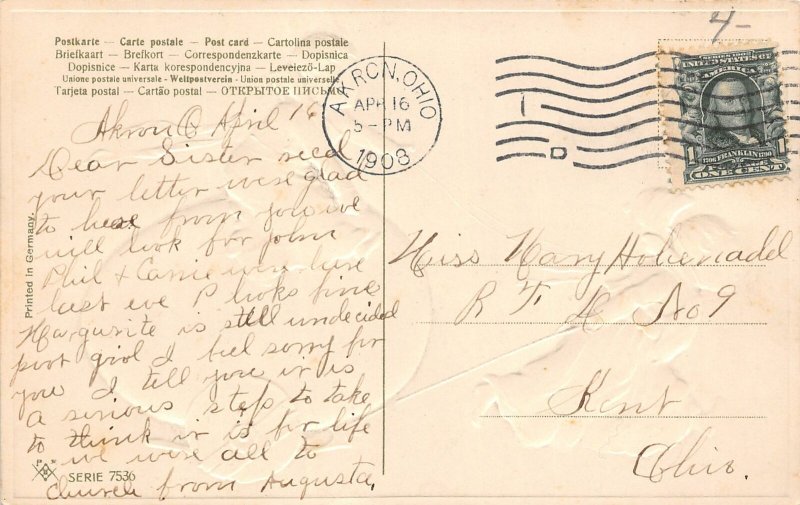 Postkarte – Carte postale – Post card – Cartolina postale
Briefkaart – Brefkort – Correspondenzkarte – Dopisnica
Dopisnice – Karta korespondencyjna – Levelező-Lap
Union postale universelle - Weltpostverein - Union postale universelle
Tarjeta postal – Cartão postal – ОТКРЫТОЕ ПИСЬМО
Akron O April 16
Dear Sister recd
your letter were glad
to hear from you we
will look for John
Phil & Carrie were here
last eve P looks fine
Margurite is still undecided
poor girl I feel sorry for
you I tell you it is
a serious step to take
to think it is for life
we were all to
church from Augusta,
Printed in Germany.
SERIE 7536
AKRON, OHIO
APR 16
5-PM
1908
4-
SERIES 1902
UNITED STATES OF
AMERICA
1 1706 FRANKLIN 1790 1
ONE CENT
Miss Mary
R F D No 9
Kent
Ohio.